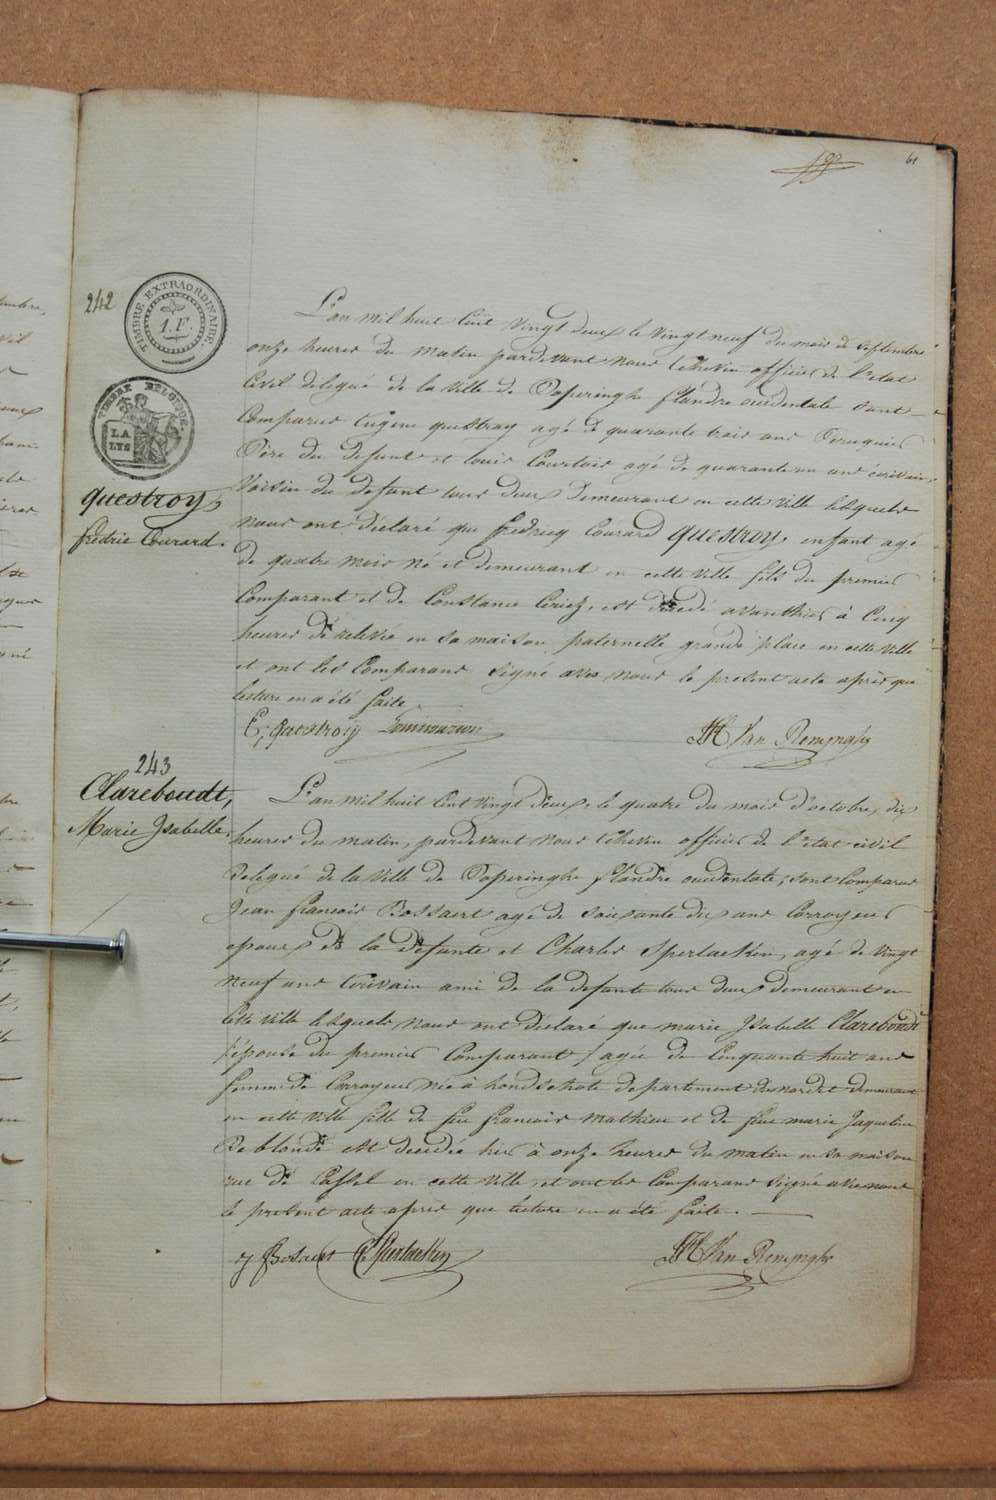 61
242
TIMBRE EXTRAORDINAIRE
1.F.
TIMBRE BELGIQUE
LA LYS
questroy,
fredric Conrard.
L'an mil huit Cent vingt deux le vingt neuf du mois de Septembre
onze heures du matin pardevant nous Echevin officier de l'etat
Civil delegué de la ville de Poperinghe flandre occidentale sont
Comparus Eugene questroy agé de quarante trois ans Peruquier
Père du defunt et louis Courtois agé de quarante un ans écrivain
Voisin du defunt tous deux Demeurant en cette ville lesquels
nous ont déclaré que fredricq Conrard questroy, enfant agé
de quatre mois né et demeurant en cette ville fils du premier
Comparant et de Constance Ceriez, est décedé avanthier à Cinq
heures de relevée en sa maison paternelle grande place en cette ville
et ont les Comparans signé avec nous le present acte après que
lecture en a été faite
E; questroy Van Renynghe
243
Clareboudt,
Marie Isabelle.
L'an mil huit Cent vingt deux, le quatre du mois d'octobre, dix
heures du matin, pardevant nous Echevin officier de l'etat civil
delegué de la ville de Poperinghe flandre occidentale, sont Comparus
Jean francois Bossaert agé de soixante dix ans Corroyeur
epoux de la défunte et Charles Sperlaeken, agé de vingt
neuf ans Ecrivain ami de la defunte tous deux demeurant en
Cette ville lesquels nous ont déclaré que marie Isabelle Clareboudt
(épouse du premier Comparant) agée de Cinquante huit ans
femme de Corroyeur née à hondschote departement du nord et demeurant
en cette ville fille de feu francois mathieu et de feue marie Jaqueline
De blonde est decedée hier à onze heures du matin en sa maison
rue de Cassel en cette ville, et ont les Comparans signé avec nous
le present acte après que lecture en a été faite.
J Bossaert C Sperlaeken Van Renynghe